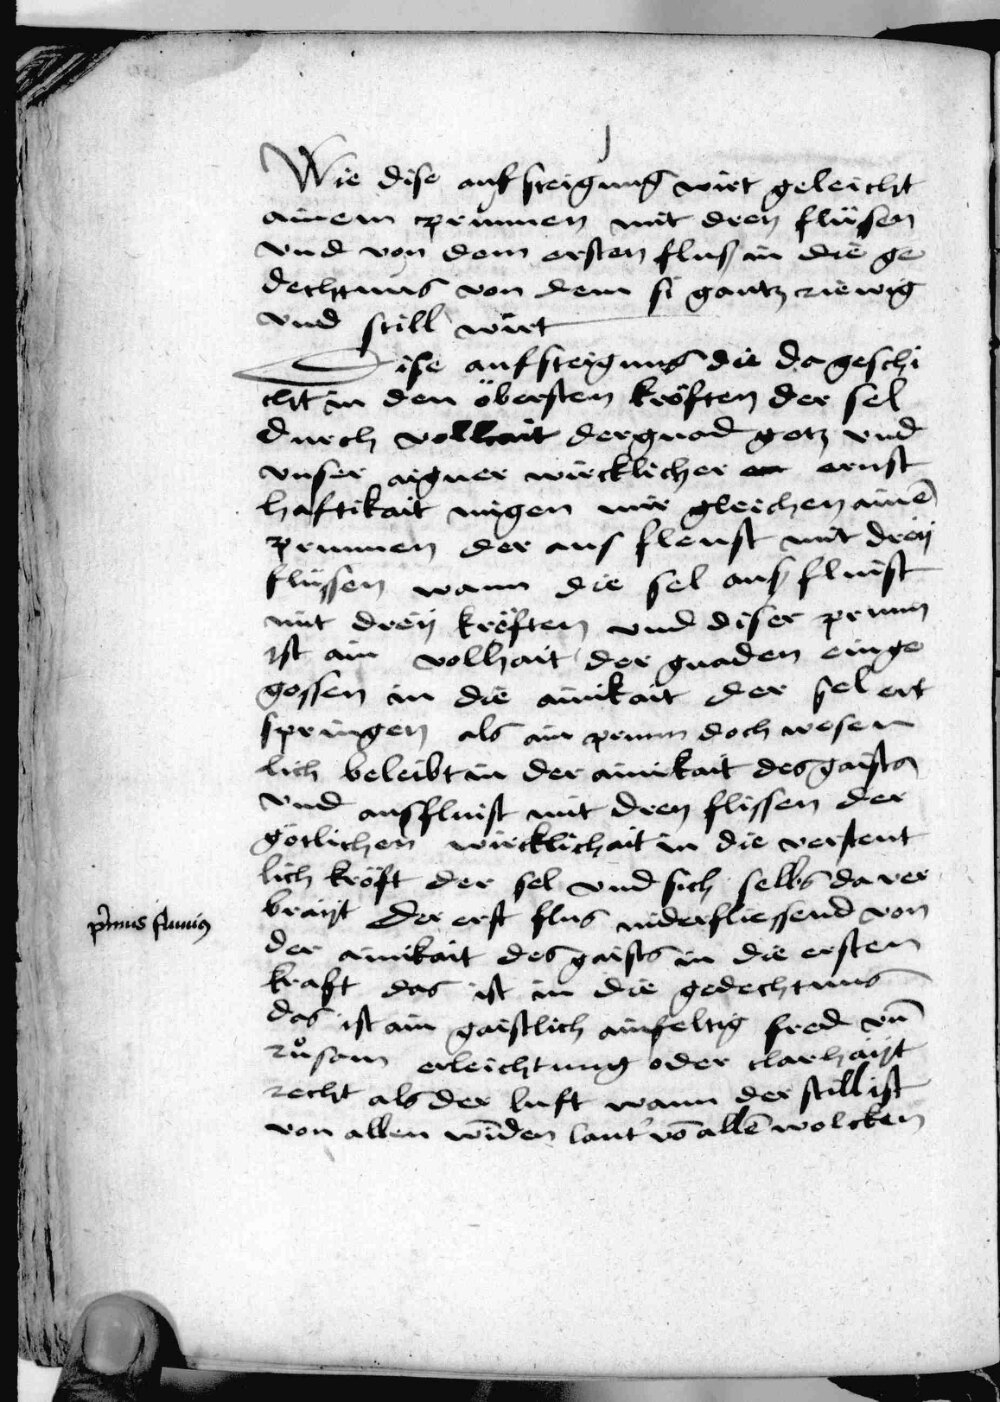 Wie dise aufsteigung wirt geleicht
ainem prunnen mit dren flüsen
vnd von dem ersten flus in die ge
dechtnus von dem si gantz riewig
vnd still wirt
Dise aufsteigung die da geschi
cht in den öbersten kröften der sel
durch vollhait der gnad gotz vnd
vnser aigner wircklicher ernst
haftikait migen mir gleichen ainē
prunnen der aus fleust mit dreÿ
flüssen wann die sel ausfluist
mit dreÿ kröften vnd diser prunn
ist ain vollhait der gnaden einge
gossen in die ainikait der sel ent
springen als ain prunn doch wesen
lich beleibt in der ainikait des gaists
vnd ausfluist mit dren flissen der
götlichen wircklichait in die verstent
lich kröft der sel vnd sich selbs da ver
braÿt Der erst flus niderfliessend von
der ainikait des gaists in die ersten
kraft das ist in die gedechtnus
das ist ain gaistlich ainfeltig fred vn̄
růsam erleichtung oder clarhaÿt
recht als der luft wann der still ist
von allen winden laut' vō allē wolcken
p̄mus fluuius